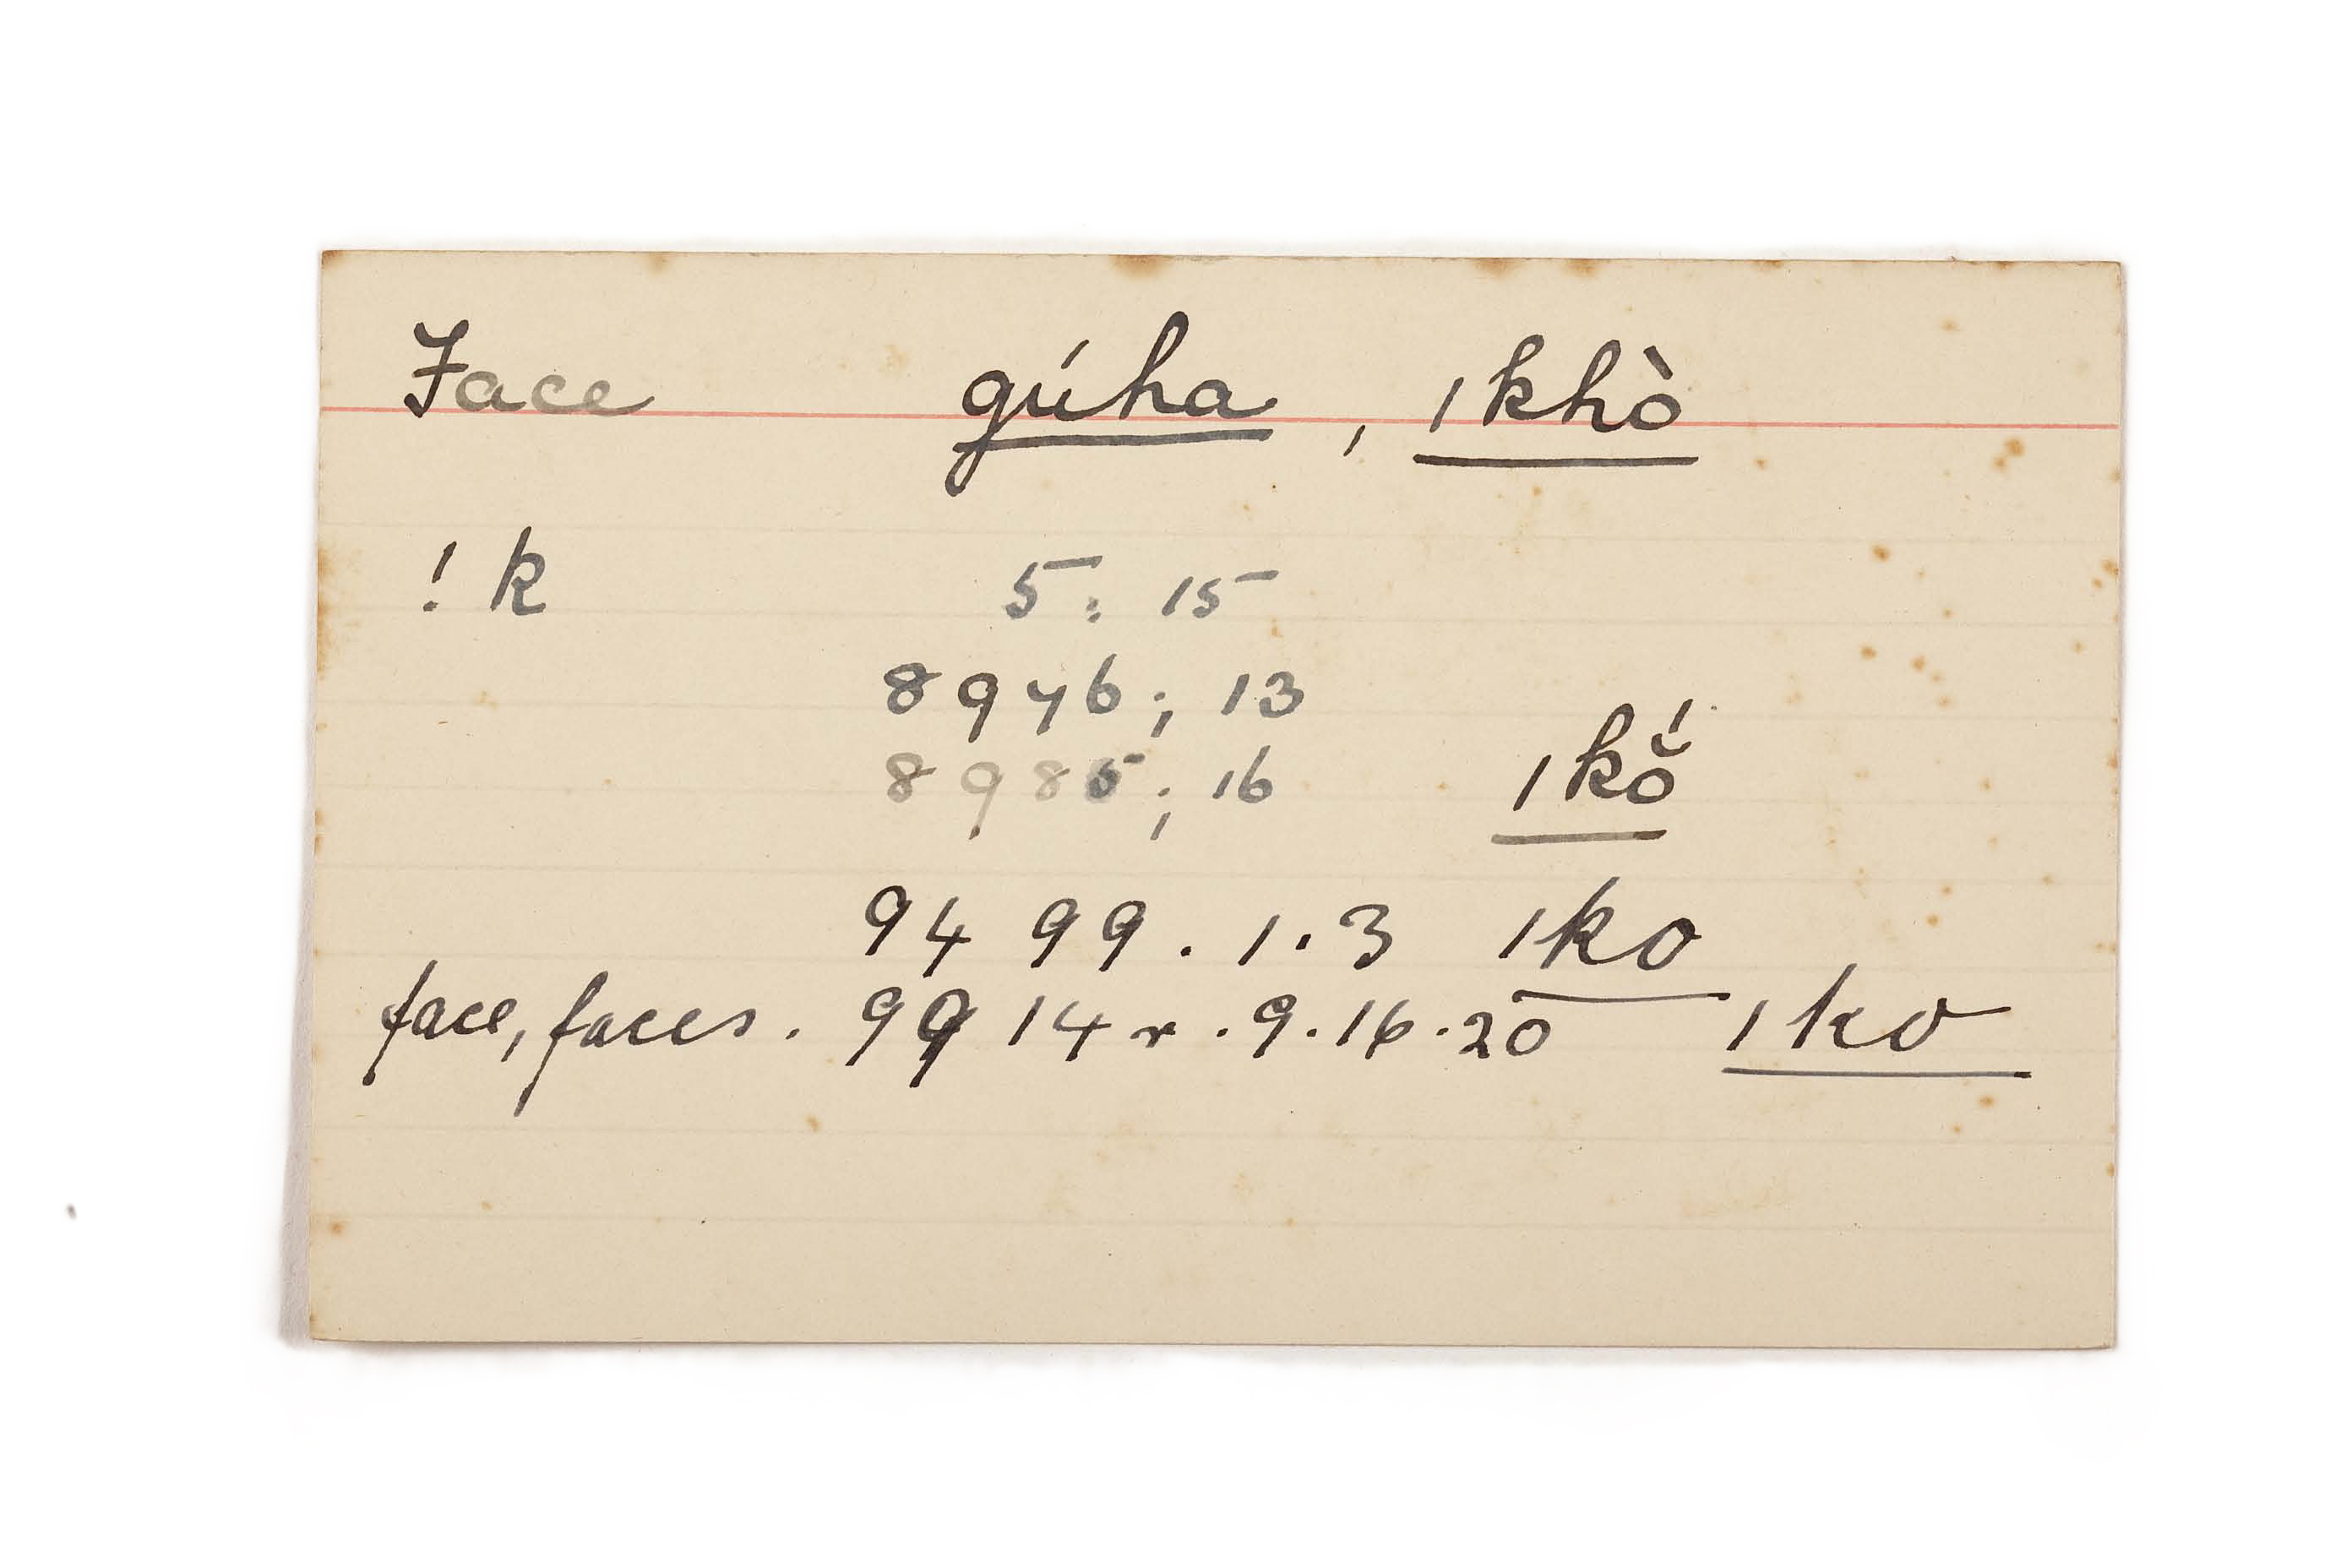 Face gúha, ǀkhò
! k 5: 15
8946; 13
8985; 16 ǀkŏ́
9499.1.3 ǀko
face, faces. 9914 r. 9.16.20 ǀko